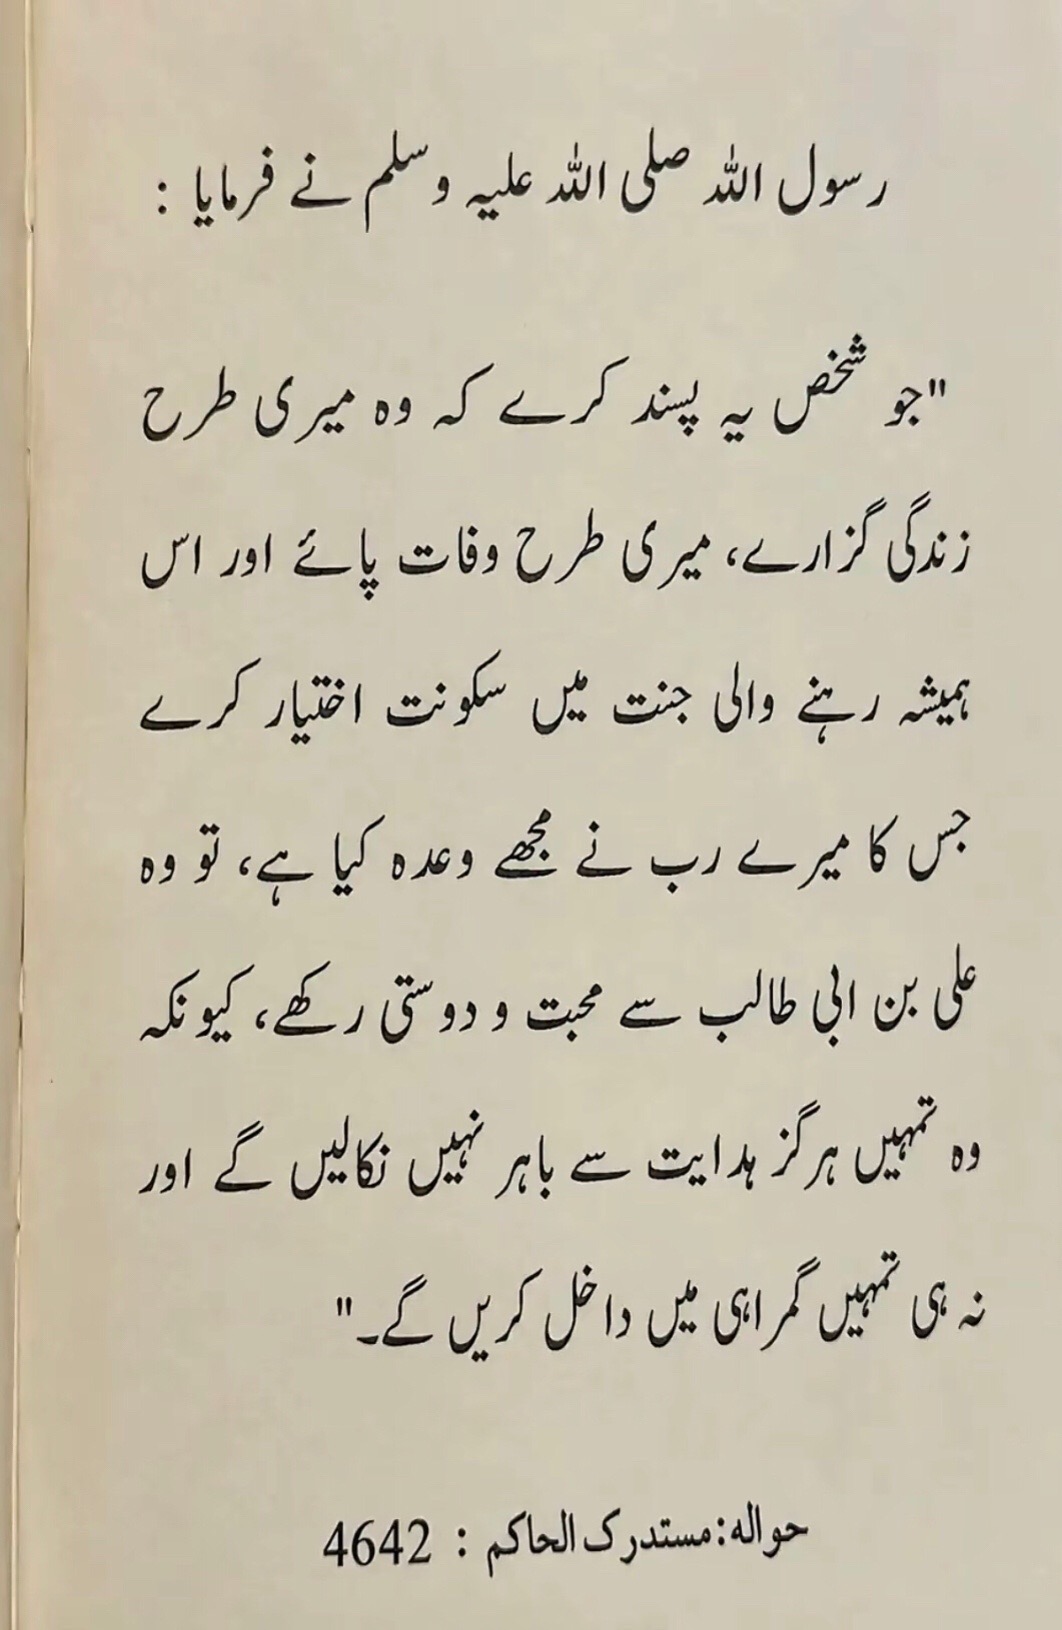 رسول اللہ صلی اللہ علیہ وسلم نے فرمایا :
"جو شخص یہ پسند کرے کہ وہ میری طرح
زندگی گزارے، میری طرح وفات پائے اور اس
ہمیشہ رہنے والی جنت میں سکونت اختیار کرے
جس کا میرے رب نے مجھے وعدہ کیا ہے، تو وہ
علی بن ابی طالب سے محبت و دوستی رکھے، کیونکہ
وہ تمہیں ہرگز ہدایت سے باہر نہیں نکالیں گے اور
نہ ہی تمہیں گمراہی میں داخل کریں گے۔"
حوالہ: مستدرک الحاکم : 4642